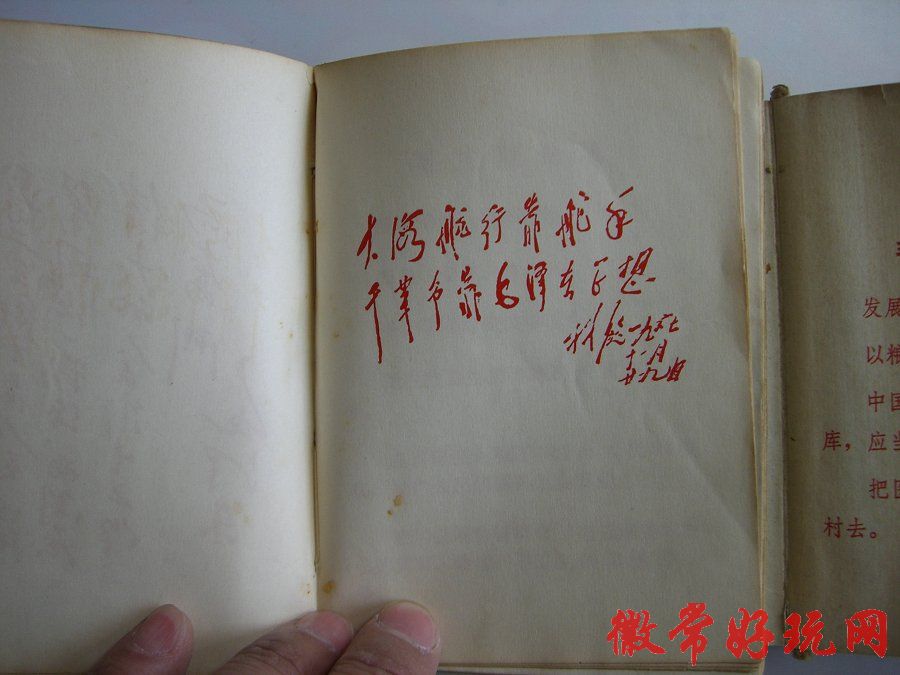 大海航行靠舵手
干革命靠毛泽东思想
林彪一九六七
十一月
廿九日
发展
以粮
中国
库，应当
把医
村去。
徽常好玩网